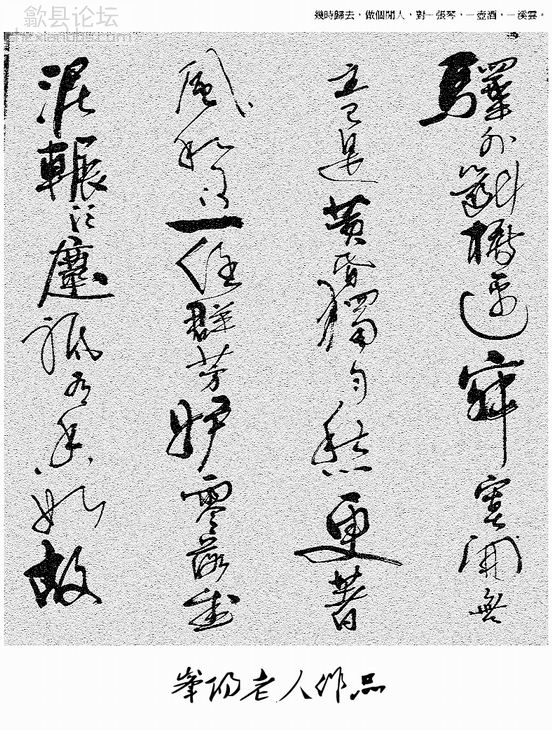 歙县论坛
幾時歸去,做個閒人,對一張琴,一壺酒,一溪雲。
驛外斷橋邊寂寞開無
主已是黃昏獨自愁更著
風和雨一任群芳妒零落成
泥輾作塵祇有香如故
老人作品